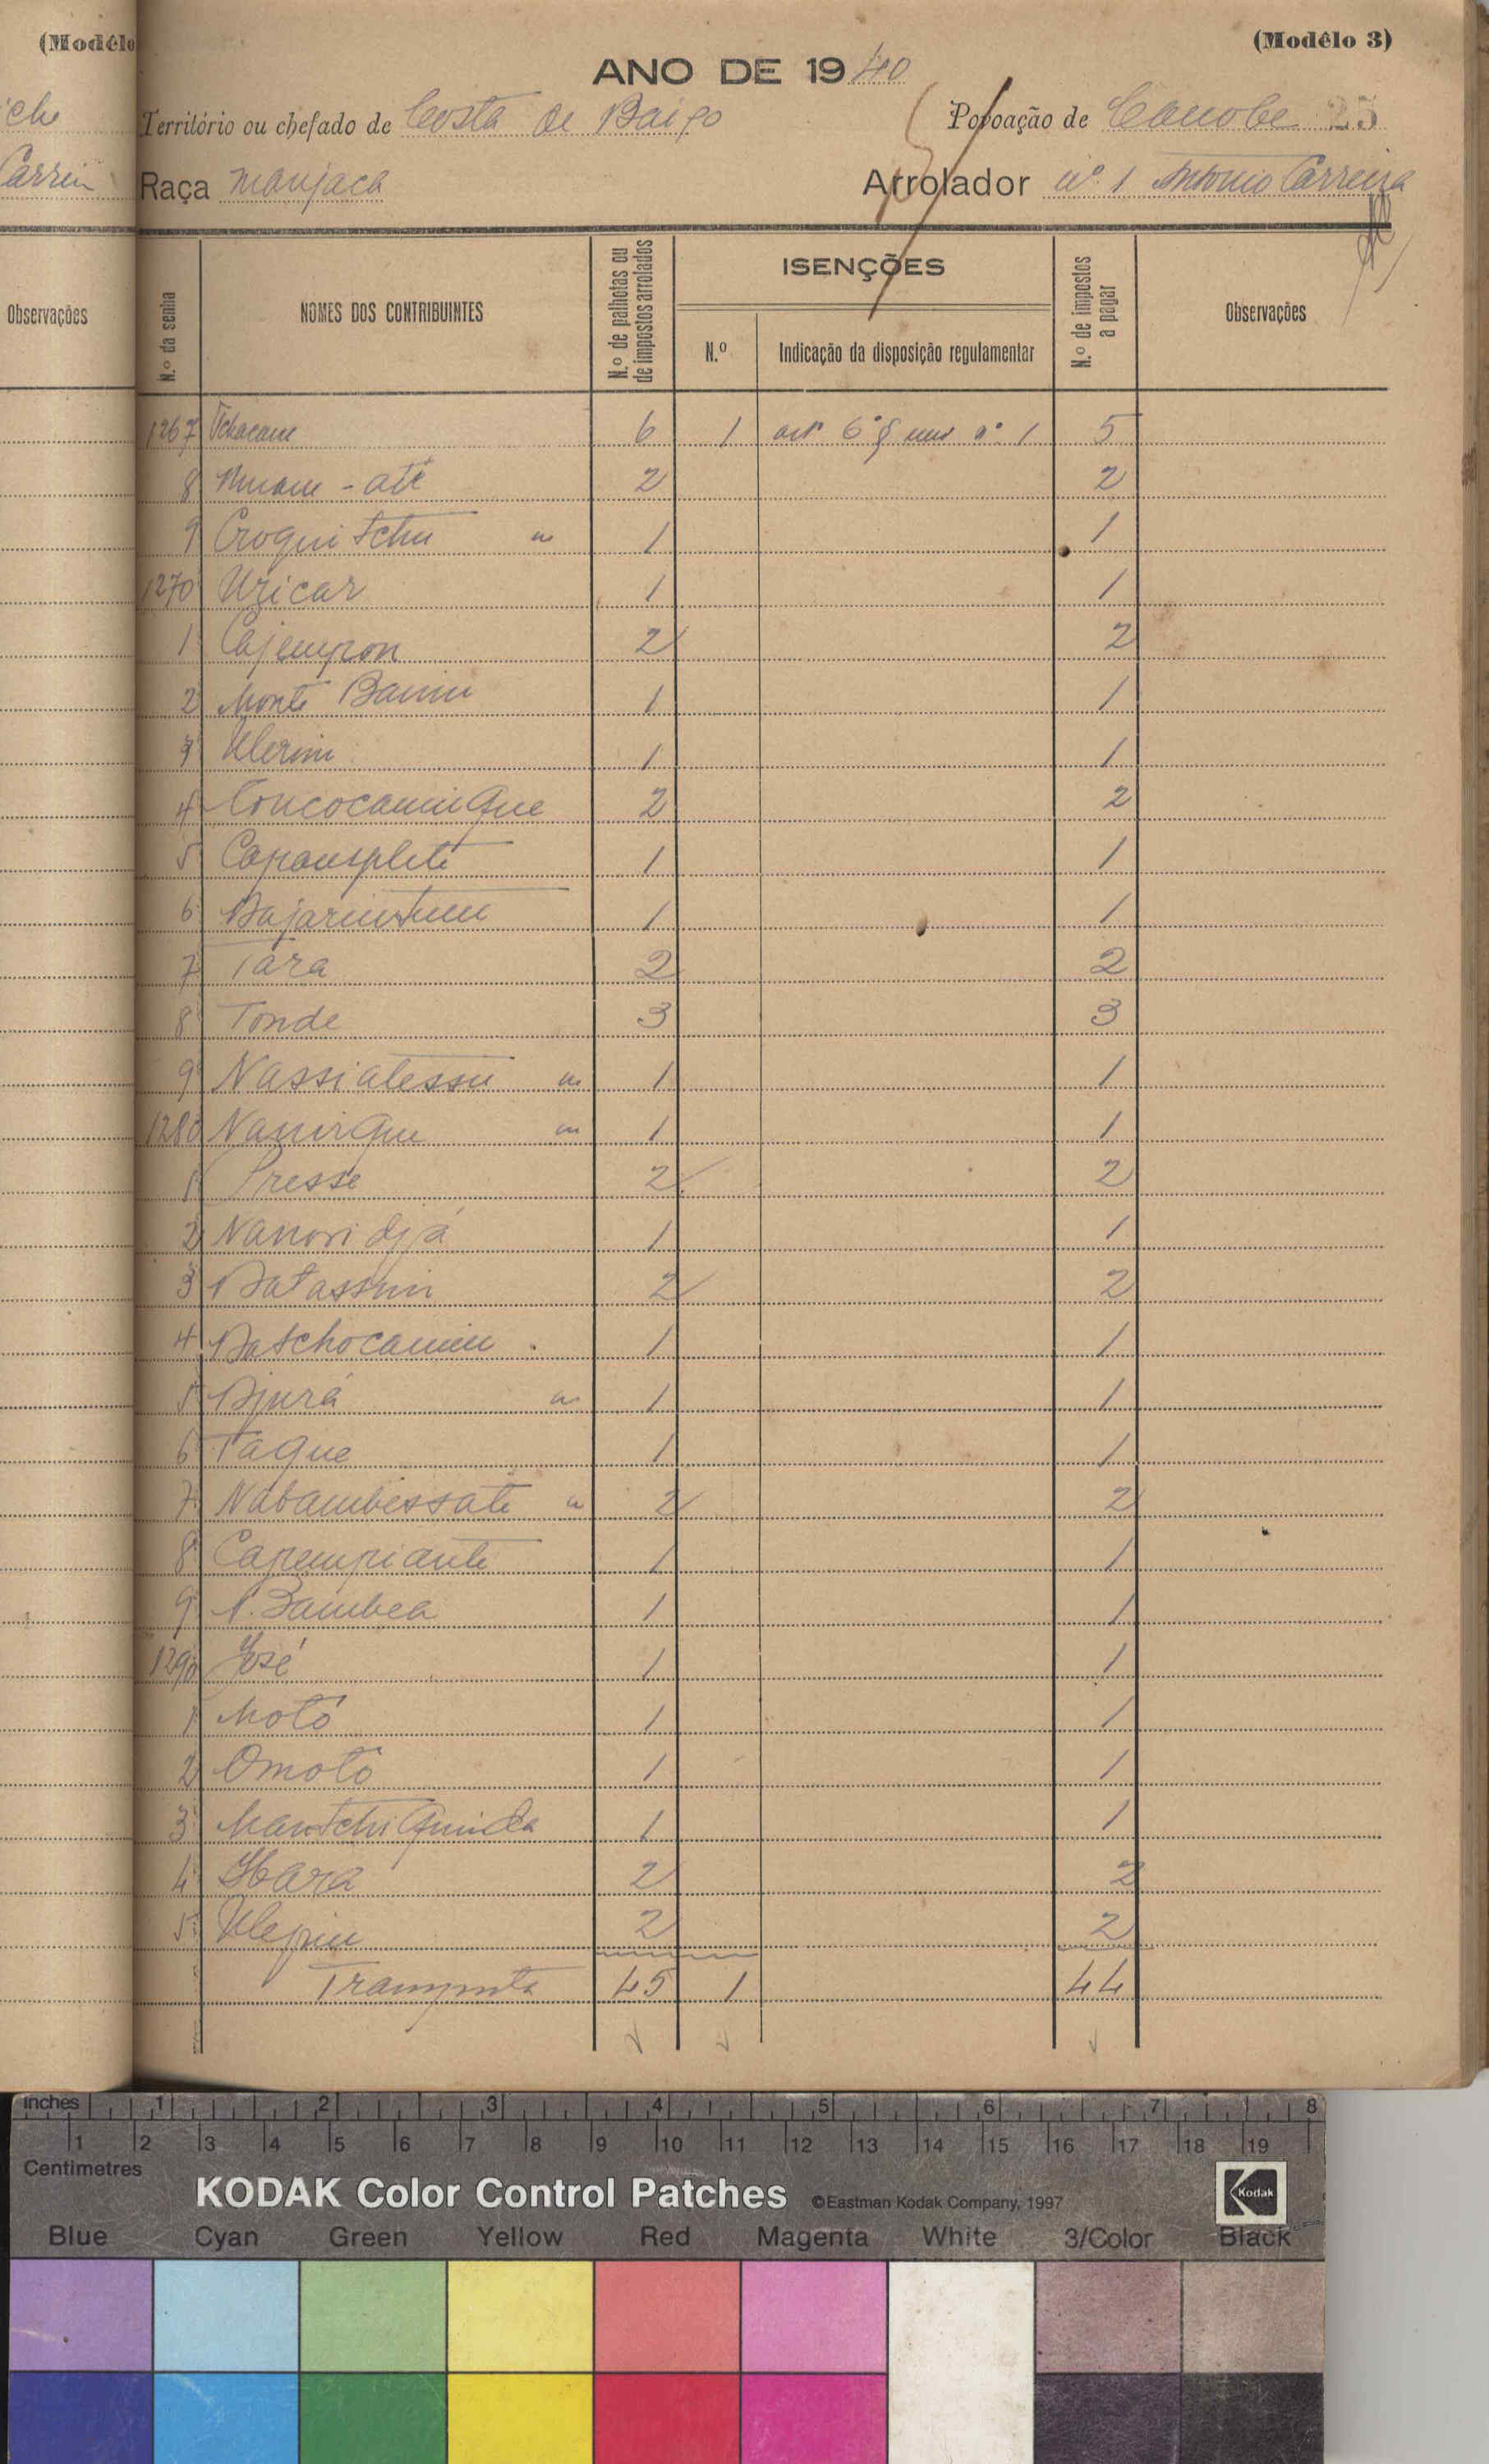 (Modêlo
(Modêlo 3)
ANO DE 1940
che
Território ou chefado de Costa de Baixo Povoação de Canobe 25
Carrei
Raça manjaca Arrolador nº 1 Antonio Carreira
Observações
N.º da senha
NOMES DOS CONTRIBUINTES
N.º de palhotas ou de impostos arrolados
ISENÇÕES
N.º
Indicação da disposição regulamentar
N.º de impostos a pagar
Observações
1267 Tchacam 6 1 artº 6º § nº 1 5
8 - até 2 2
9 Croqui tchu 1 1
1270 Uzicar 1 1
1 Cajempon 2 2
2 Monte 1 1
3 Ulerim 1 1
4 Concocamique 2 2
5 Capansplete 1 1
6 1 1
7 Tara 2 2
8 Tonde 3 3
9 Nassialessu 1 1
1280 Naunique 1 1
1 Presse 2 2
2 Nanoridjá 1 1
3 Batassim 2 2
4 Batchocamim 1 1
5 Djurá 1 1
6 Taque 1 1
7 Nabambessate 2 2
8 Capempiante 1 1
9 N. Bambea 1 1
1290 José 1 1
1 Motó 1 1
2 Omotó 1 1
3 Mantchi Quinda 1 1
4 Ibara 2 2
5 Ulepin 2 2
Transporte 45 1 44
inches 1 2 3 4 5 6 7 8
1 2 3 4 5 6 7 8 9 10 11 12 13 14 15 16 17 18 19
Centimetres
KODAK Color Control Patches ©Eastman Kodak Company, 1997 Kodak
Blue Cyan Green Yellow Red Magenta White 3/Color Black